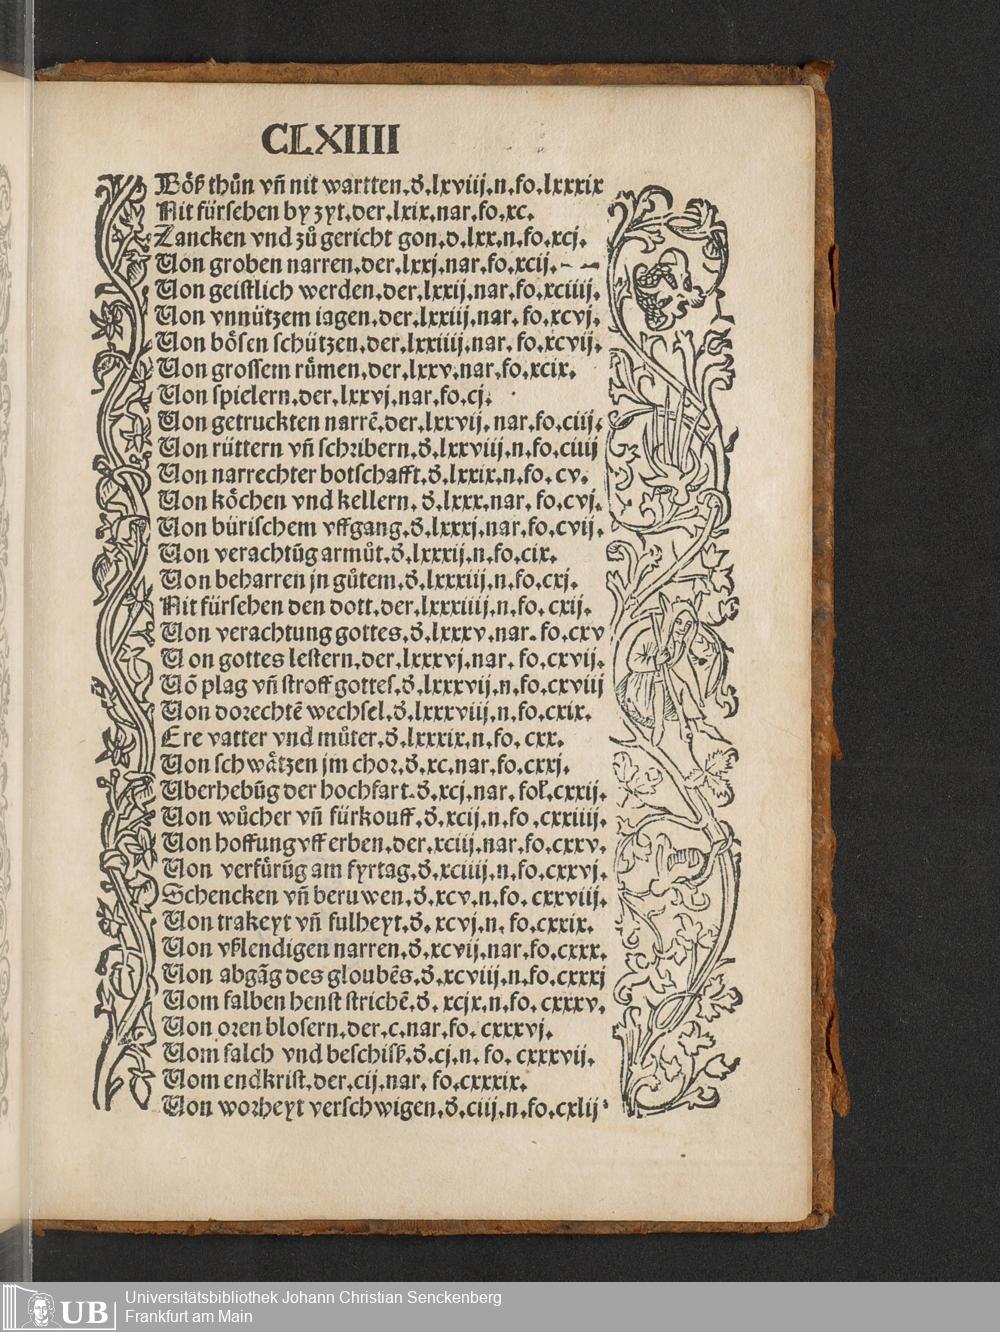 CLXIIII
Boͤß thuͦn vñ nit wartten.đ.lxviij.n.fo.lxxxix
Nit fürsehen by zyt.der.lxix.nar.fo.xc.
Zancken vnd zuͦ gericht gon.d.lxx.n.fo.xcj.
Von groben narren.der.lxxj.nar.fo.xcij.
Von geistlich werden.der.lxxij.nar.fo.xciiij.
Von vnnützem iagen.der.lxxiij.nar.fo.xcvj.
Von boͤsen schützen.der.lxxiiij.nar.fo.xcvij.
Von grossem ruͤmen.der.lxxv.nar.fo.xcix.
Von spielern.der.lxxvj.nar.fo.cj.
Von getruckten narrē.der.lxxvij.nar.fo.ciij.
Von rüttern vñ schribern.đ.lxxviij.n.fo.ciiij
Von narrechter botschafft.đ.lxxix.n.fo.cv.
Von koͤchen vnd kellern.đ.lxxx.nar.fo.cvj.
Von bürischem vffgang.đ.lxxxj.nar.fo.cvij.
Von verachtūg armuͦt.đ.lxxxij.n.fo.cix.
Von beharren jn guͦtem.đ.lxxxiij.n.fo.cxj.
Nit fürsehen den dott.der.lxxxiiij.n.fo.cxij.
Von verachtung gottes.đ.lxxxv.nar.fo.cxv
Von gottes lestern.der.lxxxvj.nar.fo.cxvij.
Vō plag vñ stroff gottes.đ.lxxxvij.n.fo.cxviij
Von dorechtē wechsel.đ.lxxxviij.n.fo.cxix.
Ere vatter vnd muͦter.đ.lxxxix.n.fo.cxx.
Von schwaͤtzen jm chor.đ.xc.nar.fo.cxxj.
Vberhebūg der hochfart.đ.xcj.nar.fol.cxxij.
Von wuͦcher vñ fürkouff.đ.xcij.n.fo.cxxiiij.
Von hoffung vff erben.der.xciij.nar.fo.cxxv.
Von verfuͤrūg am fyrtag.đ.xciiij.n.fo.cxxvj.
Schencken vñ beruwen.đ.xcv.n.fo.cxxviij.
Von trakeyt vñ fulheyt.đ.xcvj.n.fo.cxxix.
Von vßlendigen narren.đ.xcvij.nar.fo.cxxx.
Von abgāg des gloubēs.đ.xcviij.n.fo.cxxxj
Vom falben henst strichē.đ.xcjx.n.fo.cxxxv.
Von oren blosern.der.c.nar.fo.cxxxvj.
Vom falch vnd beschiß.đ.cj.n.fo.cxxxvij.
Vom endkrist.der.cij.nar.fo.cxxxix.
Von worheyt verschwigen.đ.ciij.n.fo.cxlij
UB
Universitätsbibliothek Johann Christian Senckenberg
Frankfurt am Main